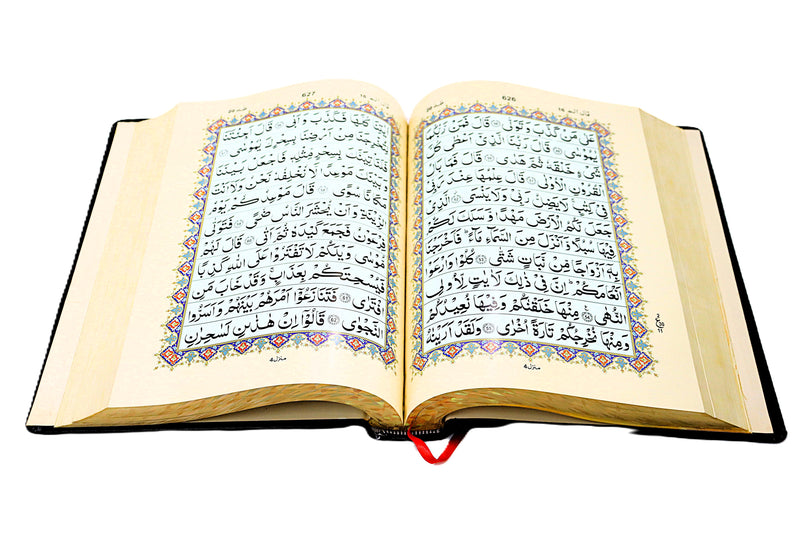 626
قَالَ اَلَمْ ١٦
طٰهٰ ٢٠
عَلٰى مَنْ كَذَّبَ وَتَوَلّٰى ﴿٤٨﴾ قَالَ فَمَنْ رَّبُّكُمَا
يٰمُوْسٰى ﴿٤٩﴾ قَالَ رَبُّنَا الَّذِيْٓ اَعْطٰى كُلَّ
شَيْءٍ خَلْقَهٗ ثُمَّ هَدٰى ﴿٥٠﴾ قَالَ فَمَا بَالُ
الْقُرُوْنِ الْاُوْلٰى ﴿٥١﴾ قَالَ عِلْمُهَا عِنْدَ رَبِّيْ
فِيْ كِتٰبٍ لَا يَضِلُّ رَبِّيْ وَلَا يَنْسَى ﴿٥٢﴾ الَّذِيْ
جَعَلَ لَكُمُ الْاَرْضَ مَهْدًا وَّسَلَكَ لَكُمْ
فِيْهَا سُبُلًا وَّاَنْزَلَ مِنَ السَّمَآءِ مَآءً ؕ فَاَخْرَجْنَا
بِهٖٓ اَزْوَاجًا مِّنْ نَّبَاتٍ شَتّٰى ﴿٥٣﴾ كُلُوْا وَارْعَوْا
اَنْعَامَكُمْ ؕ اِنَّ فِيْ ذٰلِكَ لَاٰيٰتٍ لِّاُولِي
النُّهٰى ﴿٥٤﴾ مِنْهَا خَلَقْنٰكُمْ وَفِيْهَا نُعِيْدُكُمْ
وَمِنْهَا نُخْرِجُكُمْ تَارَةً اُخْرٰى ﴿٥٥﴾ وَلَقَدْ اَرَيْنٰهُ
منزل ٤
627
قَالَ اَلَمْ ١٦
طٰهٰ ٢٠
كُلَّهَا فَكَذَّبَ وَاَبٰى ﴿٥٦﴾ قَالَ اَجِئْتَنَا
لِتُخْرِجَنَا مِنْ اَرْضِنَا بِسِحْرِكَ يٰمُوْسٰى ﴿٥٧﴾
فَلَنَاْتِيَنَّكَ بِسِحْرٍ مِّثْلِهٖ فَاجْعَلْ بَيْنَنَا
وَبَيْنَكَ مَوْعِدًا لَّا نُخْلِفُهٗ نَحْنُ وَلَآ اَنْتَ
مَكَانًا سُوًى ﴿٥٨﴾ قَالَ مَوْعِدُكُمْ يَوْمُ
الزِّيْنَةِ وَاَنْ يُّحْشَرَ النَّاسُ ضُحًى ﴿٥٩﴾ فَتَوَلّٰى
فِرْعَوْنُ فَجَمَعَ كَيْدَهٗ ثُمَّ اَتٰى ﴿٦٠﴾ قَالَ لَهُمْ
مُّوْسٰى وَيْلَكُمْ لَا تَفْتَرُوْا عَلَى اللّٰهِ كَذِبًا
فَيُسْحِتَكُمْ بِعَذَابٍ ۚ وَقَدْ خَابَ مَنِ
افْتَرٰى ﴿٦١﴾ فَتَنَازَعُوْٓا اَمْرَهُمْ بَيْنَهُمْ وَاَسَرُّوا
النَّجْوٰى ﴿٦٢﴾ قَالُوْٓا اِنْ هٰذٰىنِ لَسٰحِرٰنِ
منزل ٤